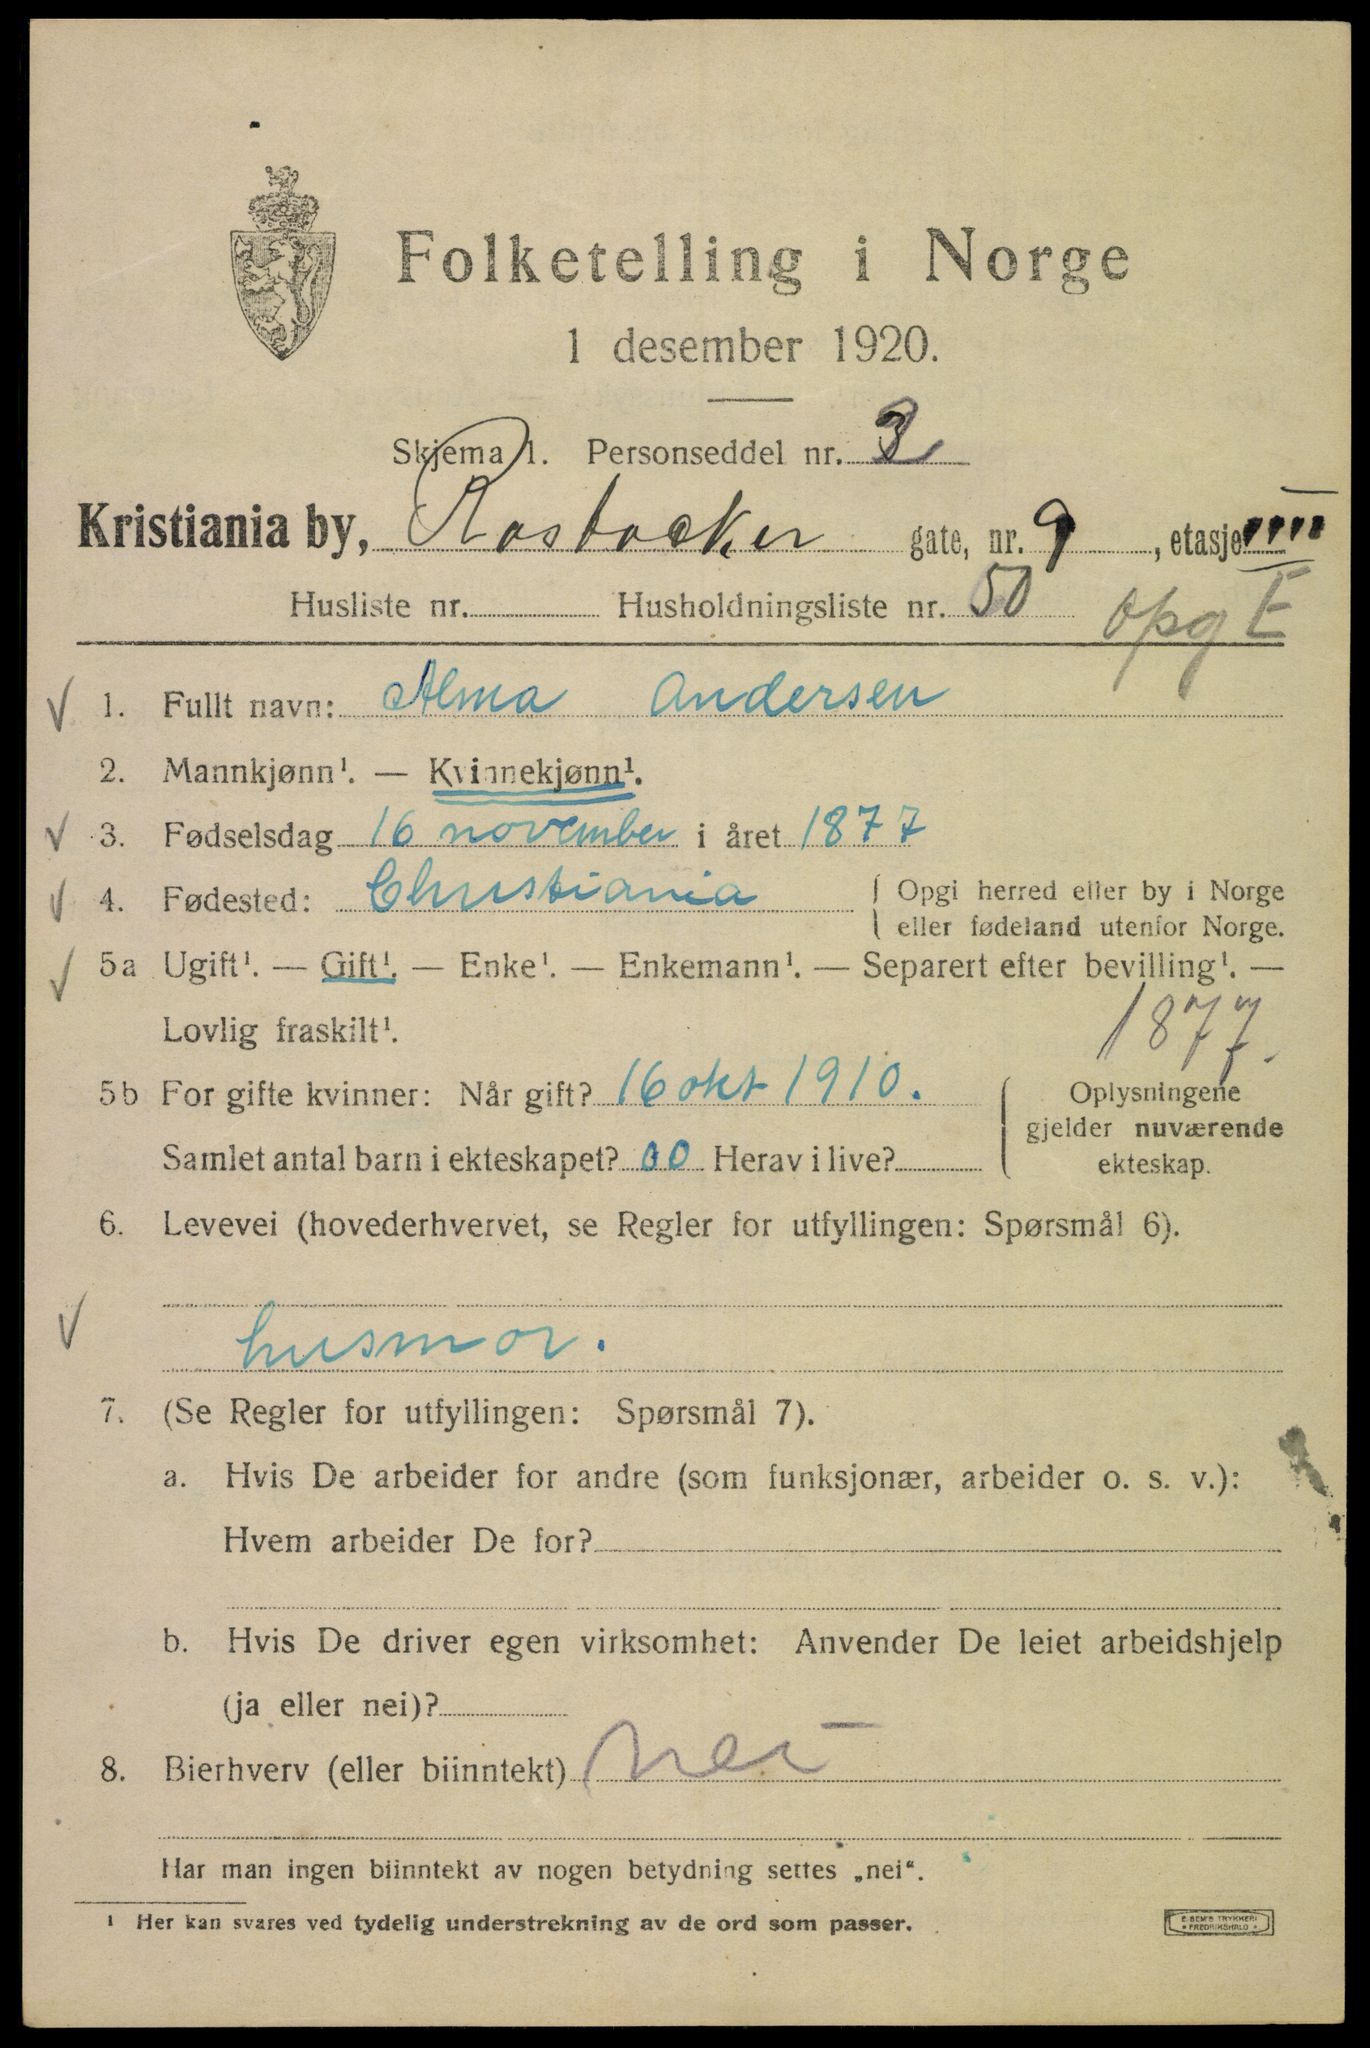 Folketelling i Norge
1 desember 1920.
Skjema 1. Personseddel nr.
Kristiania by, Rostocker gate, nr. 9, etasje
Husliste nr. Husholdningsliste nr. 50
opg E
1. Fullt navn: Alma Andersen
2. Mannkjønn¹. — Kvinnekjønn¹.
3. Fødselsdag 16 november i året 1877
4. Fødested: Christiania { Opgi herred eller by i Norge
eller fødeland utenfor Norge.
5a Ugift¹. — Gift¹. — Enke¹. — Enkemann¹. — Separert efter bevilling¹. —
Lovlig fraskilt¹.
1877.
5b For gifte kvinner: Når gift? 16 okt 1910. { Oplysningene
gjelder nuværende
Samlet antal barn i ekteskapet? 00 Herav i live?
ekteskap.
6. Levevei (hovederhvervet, se Regler for utfyllingen: Spørsmål 6).
husmor.
7. (Se Regler for utfyllingen: Spørsmål 7).
a. Hvis De arbeider for andre (som funksjonær, arbeider o. s. v.):
Hvem arbeider De for?
b. Hvis De driver egen virksomhet: Anvender De leiet arbeidshjelp
(ja eller nei)?
8. Bierhverv (eller biinntekt) Nei
Har man ingen biinntekt av nogen betydning settes „nei“.
¹ Her kan svares ved tydelig understrekning av de ord som passer.
E. SEM'S TRYKKERI
* FREDRIKSHALD *